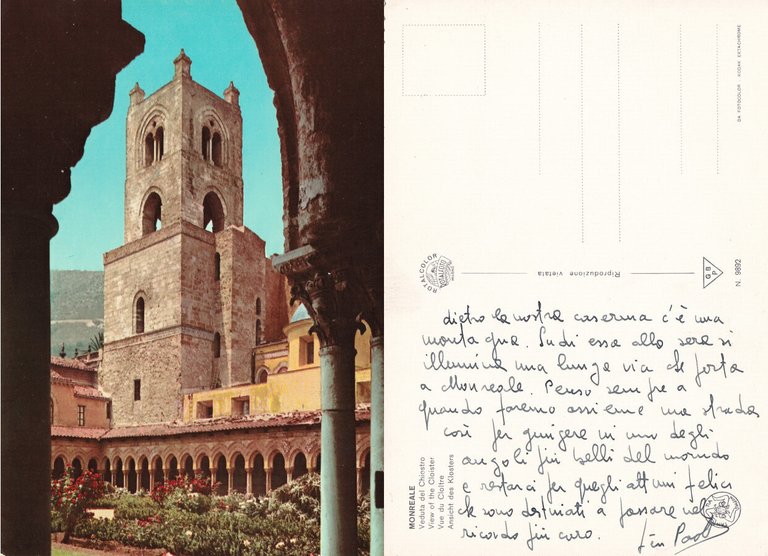 DA FOTOCOLOR KODAK EKTACHROME
ROTALCOLOR
ROTALFOTO
Riproduzione vietata
GBP
N. 9892
MONREALE
Veduta del Chiostro
View of the Cloister
Vue du Cloître
Ansicht des Klosters
dietro la nostra caserma c'è una
montagna. Su di essa alla sera si
illumina una lunga via che porta
a Monreale. Penso sempre a
quando faremo assieme una strada
così per giungere in uno degli
angoli più belli del mondo
e restarci per quegli attimi felici
che sono destinati a passare nel
ricordo più caro.